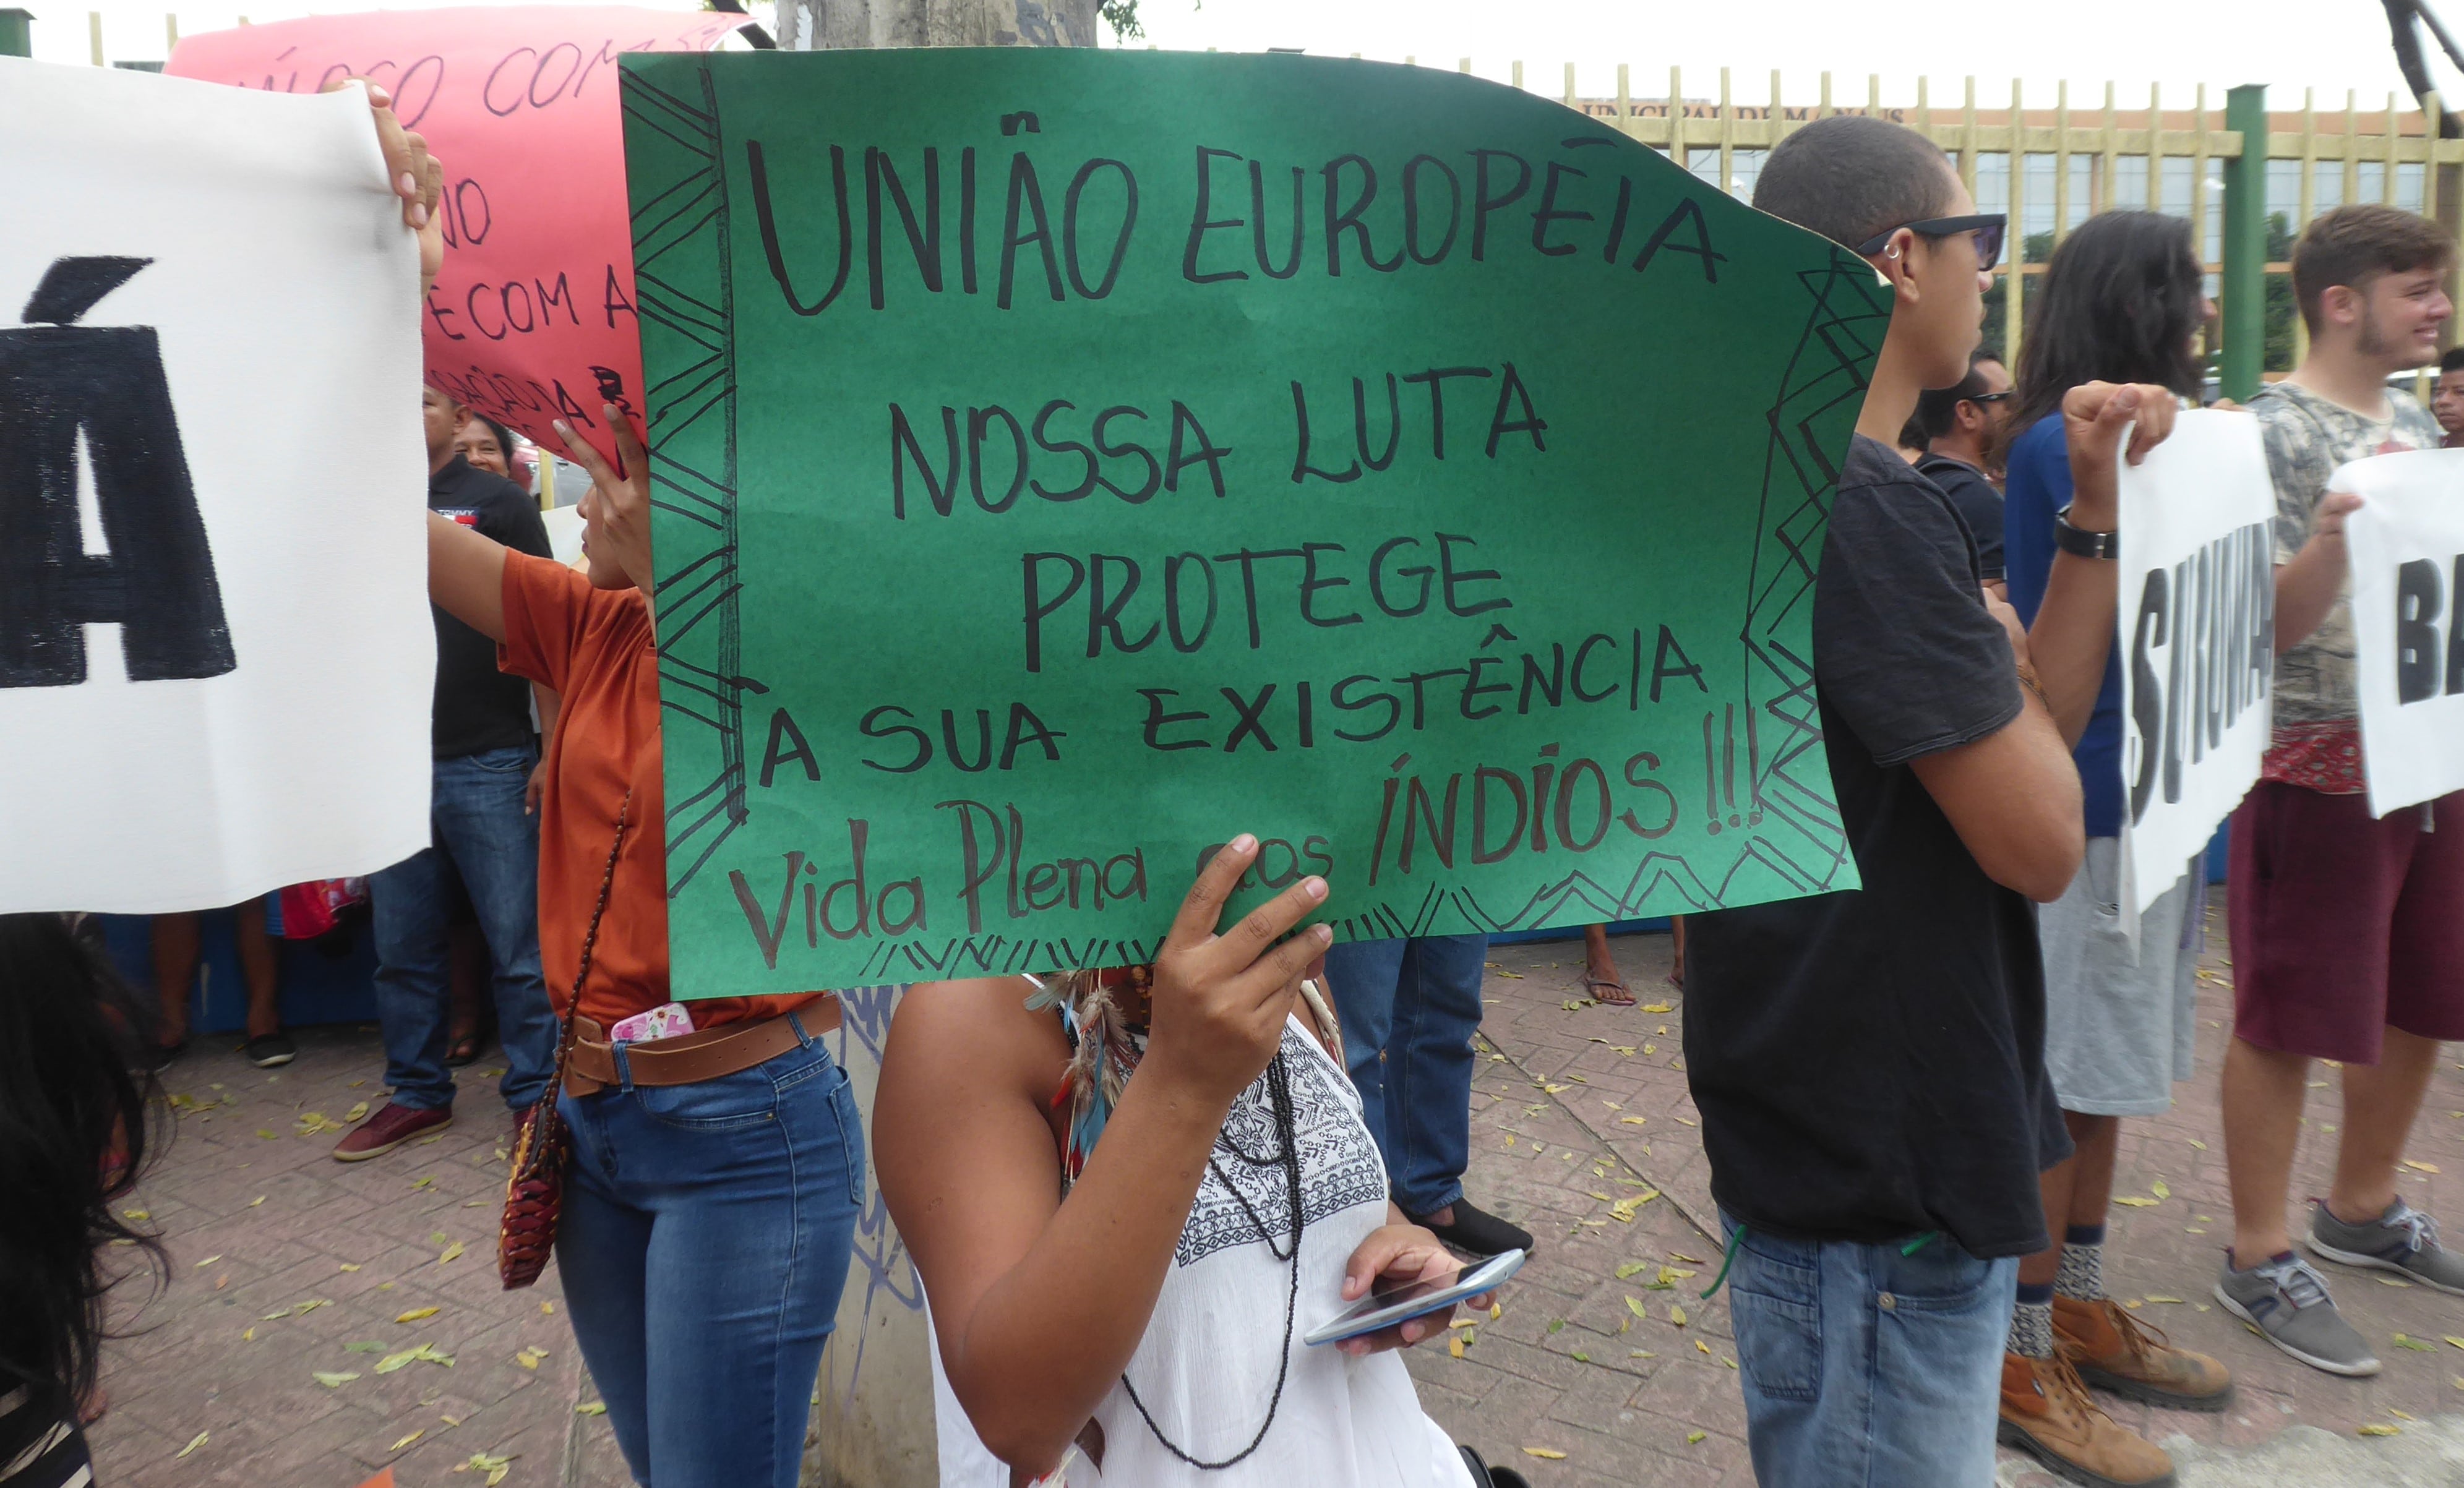 COM
NO
E COM A
Á
UNIÃO EUROPÉIA
NOSSA LUTA
PROTEGE
A SUA EXISTÊNCIA
Vida Plena aos ÍNDIOS!!!
UNICIPAL DE MANAUS
TOMMY